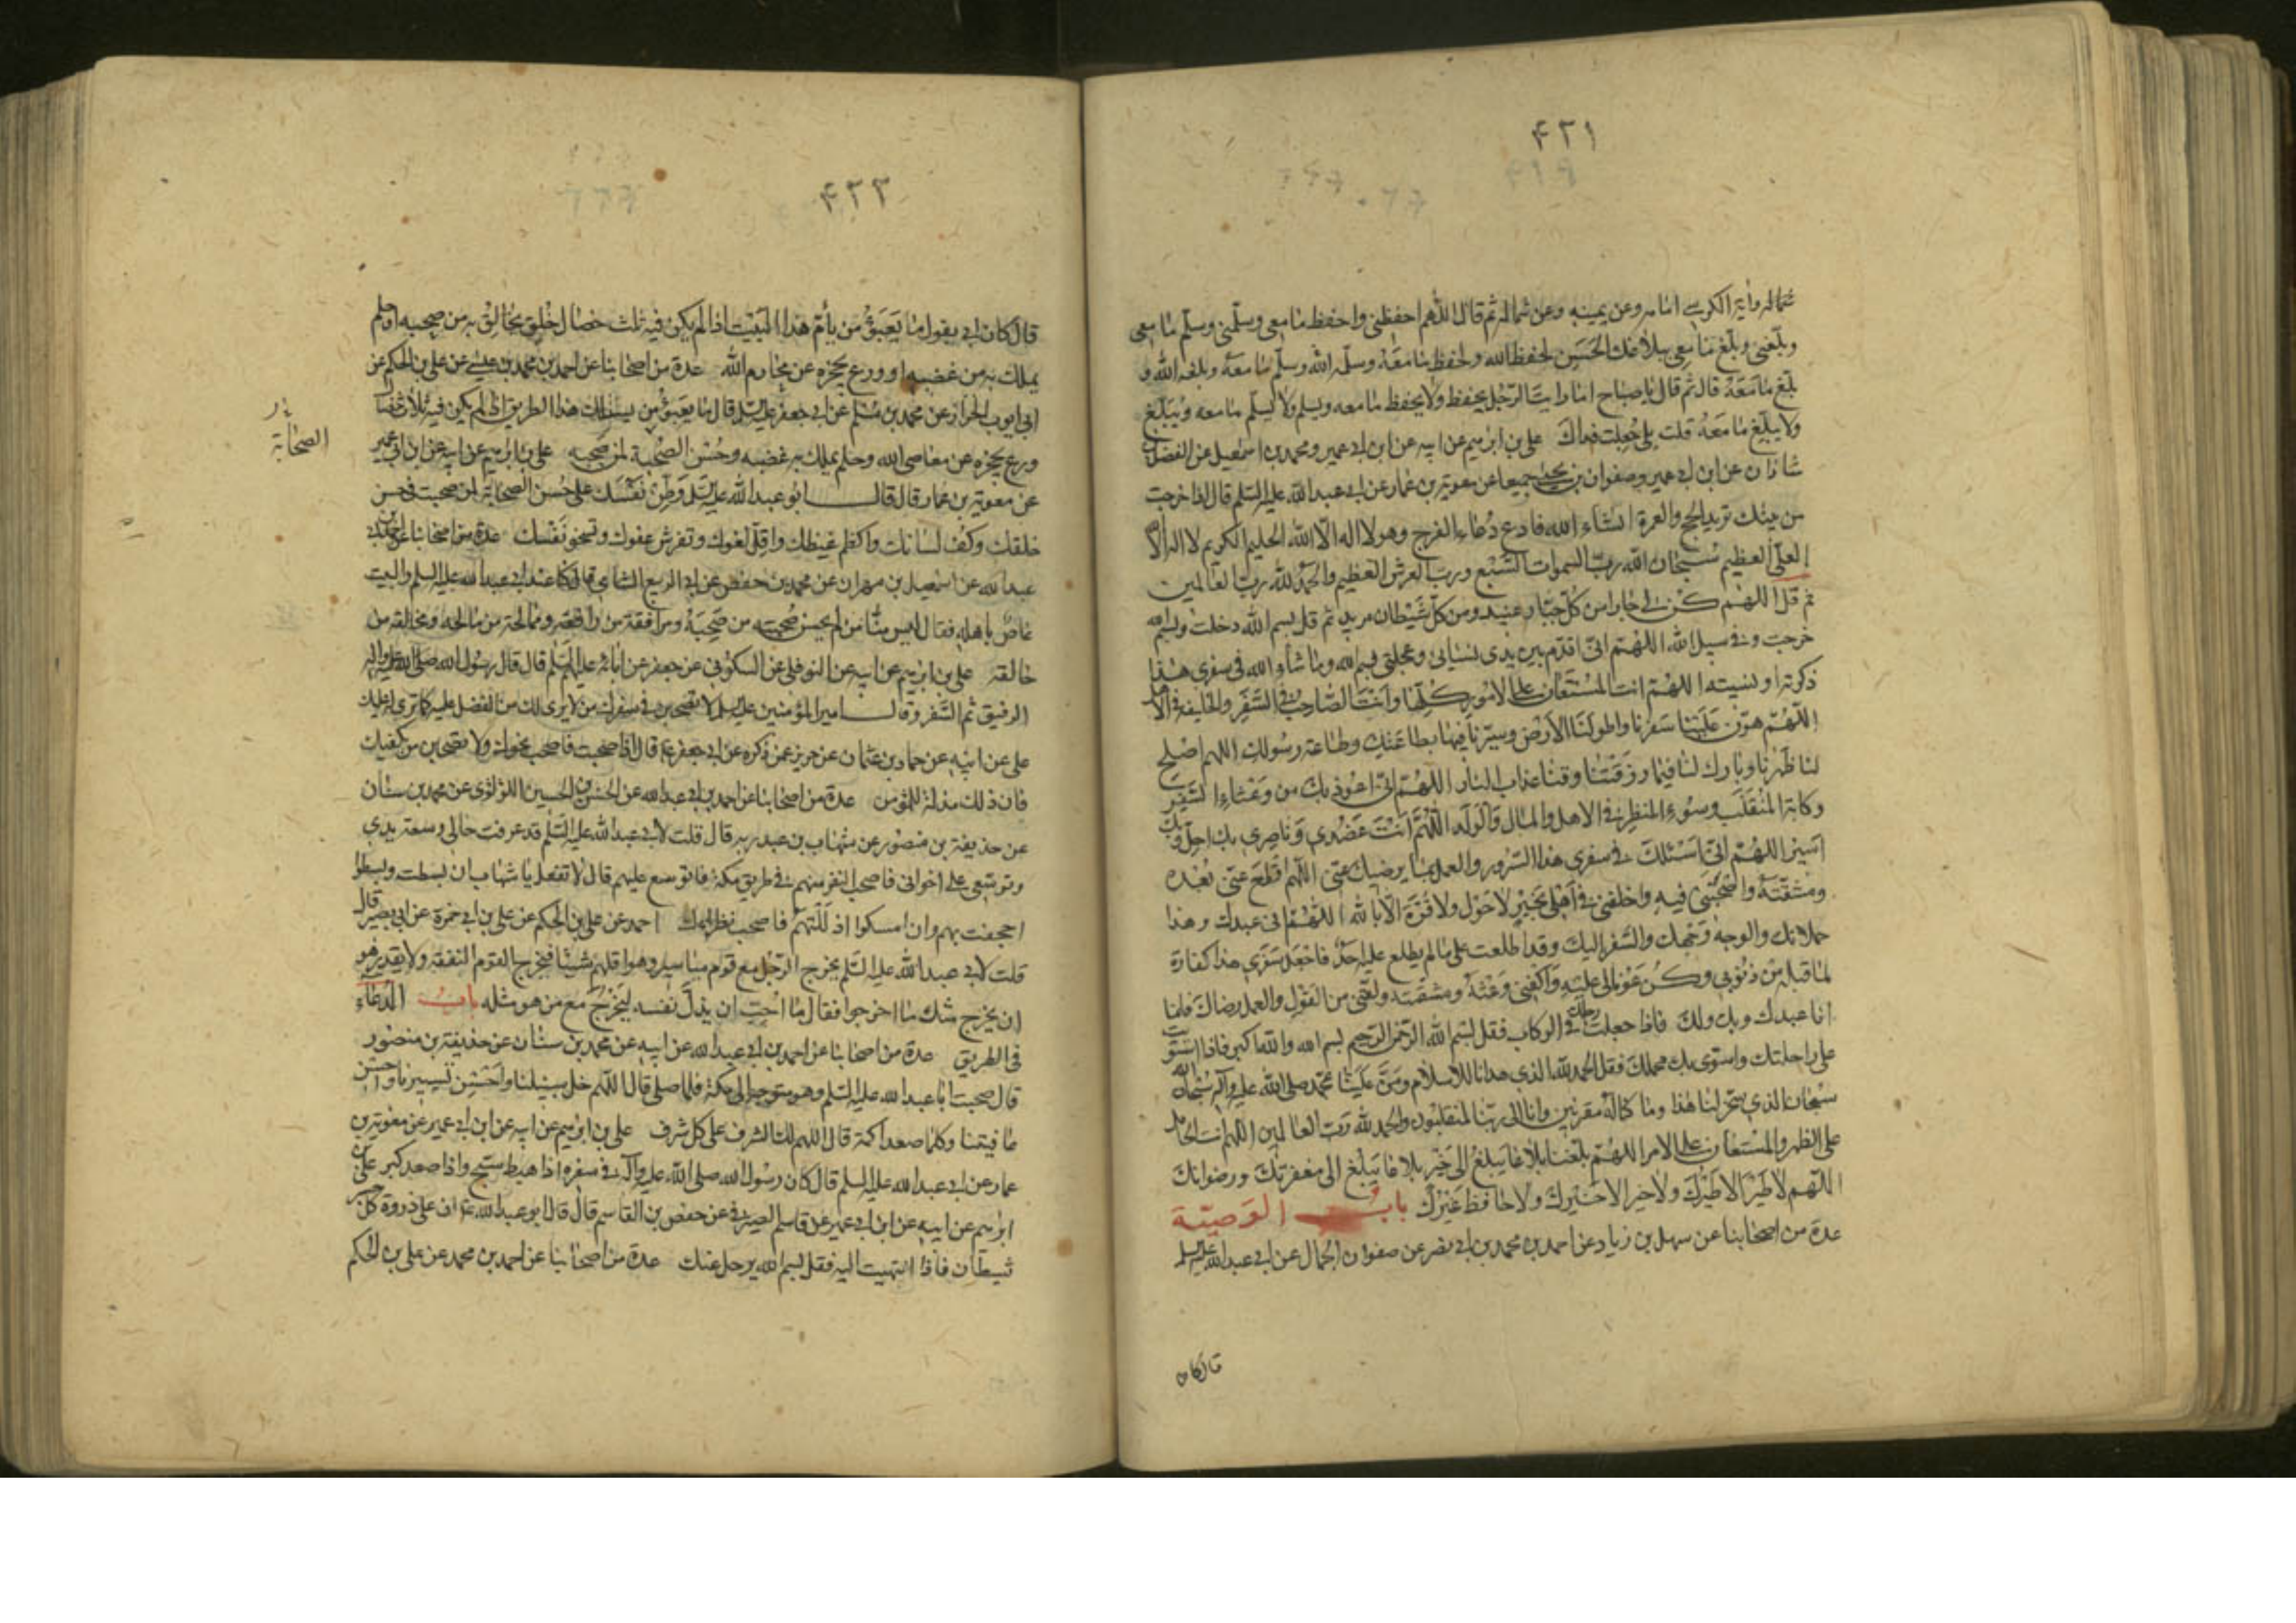 ۴۲۱
شماله وآية الكرسي امامه وعن يمينه وعن شماله ثم قال اللهم احفظني واحفظ ما معي وسلمني وسلم ما معي
وبلغني وبلغ ما معي ببلاغك الحسن لحفظه الله ولحفظ ما معه وسلمه الله وسلم ما معه وبلغه الله و
بلغ ما معه قال ثم قال يا صباح اما رايت الرجل يحفظ ولا يحفظ ما معه ويسلم ولا يسلم ما معه ويبلغ
ولا يبلغ ما معه قلت بلى جعلت فداك علي بن ابرهيم عن ابيه عن ابن ابي عمير ومحمد بن اسمعيل عن الفضل بن
شاذان عن ابن ابي عمير وصفوان بن يحيى جميعا عن معوية بن عمار عن ابي عبد الله عليه السلم قال اذا خرجت
من بيتك تريد الحج والعمرة انشاء الله فادع دعاء الفرج وهو لا اله الا الله الحليم الكريم لا اله الا الله
العلي العظيم سبحان الله رب السموات السبع ورب العرش العظيم والحمد لله رب العالمين
ثم قل اللهم كن لي جارا من كل جبار عنيد ومن كل شيطان مريد ثم قل بسم الله دخلت وبسم الله
خرجت وفي سبيل الله اللهم اني اقدم بين يدي نسياني وعجلتي بسم الله وما شاء الله في سفري هذا
ذكرته او نسيته اللهم انت المستعان على الامور كلها وانت الصاحب في السفر والخليفة في الاهل
اللهم هون علينا سفرنا واطو لنا الارض وسيرنا فيها بطاعتك وطاعة رسولك اللهم اصلح
لنا ظهرنا وبارك لنا فيما رزقتنا وقنا عذاب النار اللهم اني اعوذ بك من وعثاء السفر
وكابة المنقلب وسوء المنظر في الاهل والمال والولد اللهم انت عضدي وناصري بك احل وبك
اسير اللهم اني اسئلك في سفري هذا السرور والعمل بما يرضيك عني اللهم اقطع عني بعده
ومشقته واصحبني فيه واخلفني في اهلي بخير لا حول ولا قوة الا بالله اللهم اني عبدك وهذا
حملانك والوجه وجهك والسفر اليك وقد اطلعت على ما لم يطلع عليه احد فاجعل سفري هذا كفارة
لما قبله من ذنوبي وكن عونا لي عليه واكفني وعثه ومشقته ولقني من القول والعمل رضاك فانما
انا عبدك وبك ولك فاذا جعلت رجلك في الركاب فقل بسم الله الرحمن الرحيم بسم الله والله اكبر فاذا استويت
على راحلتك واستوى بك محملك فقل الحمد لله الذي هدانا للاسلام ومن علينا بمحمد صلى الله عليه وآله سبحان الله
سبحان الذي سخر لنا هذا وما كنا له مقرنين وانا الى ربنا لمنقلبون والحمد لله رب العالمين اللهم انت الحامل
على الظهر والمستعان على الامر اللهم بلغنا بلاغا يبلغ الى خير بلاغا يبلغ الى مغفرتك ورضوانك
اللهم لا طير الا طيرك ولا خير الا خيرك ولا حافظ غيرك باب الوصية
عدة من اصحابنا عن سهل بن زياد عن احمد بن محمد بن ابي نصر عن صفوان الجمال عن ابي عبد الله عليه السلم
قال كان
۴۲۲
قال كان ابي يقول ما يعبؤ من يأم هذا البيت اذا لم يكن فيه ثلث خصال خلق يخالق به من صحبه او حلم
يملك به من غضبه او ورع يحجزه عن محارم الله عدة من اصحابنا عن احمد بن محمد بن عيسى عن علي بن الحكم عن
ابي ايوب الخزاز عن محمد بن مسلم عن ابي جعفر عليه السلم قال ما يعبؤ من يسلك هذا الطريق اذا لم يكن فيه ثلاث خصال
ورع يحجزه عن معاصي الله وحلم يملك به غضبه وحسن الصحبة لمن صحبه علي بن ابرهيم عن ابيه عن ابن ابي عمير
الصحابة
عن معوية بن عمار قال قال ابو عبد الله عليه السلم وطن نفسك على حسن الصحابة لمن صحبت في حسن
خلقك وكف لسانك واكظم غيظك واقل لغوك وتفرش عفوك وتسخو نفسك عدة من اصحابنا عن احمد بن
عبد الله عن اسمعيل بن مهران عن محمد بن حفص عن ابي الربيع الشامي قال كنا عند ابي عبد الله عليه السلم والبيت
غاص باهله فقال ليس منا من لم يحسن صحبة من صحبه ومرافقة من رافقه وممالحة من مالحه ومخالقة من
خالقه علي بن ابرهيم عن ابيه عن النوفلي عن السكوني عن جعفر عن آبائه عليهم السلم قال قال رسول الله صلى الله عليه وآله
الرفيق ثم السفر وقال امير المؤمنين عليه السلم لا تصحبن في سفرك من لا يرى لك من الفضل عليه كما ترى له عليك
علي عن ابيه عن حماد بن عثمان عن حريز عمن ذكره عن ابي جعفر ع قال اذا صحبت فاصحب نحوك ولا تصحبن من يكفيك
فان ذلك مذلة للمؤمن عدة من اصحابنا عن احمد بن ابي عبد الله عن الحسن بن الحسين اللؤلؤي عن محمد بن سنان
عن حذيفة بن منصور عن شهاب بن عبد ربه قال قلت لابي عبد الله عليه السلم قد عرفت حالي وسعة يدي
وتوسعي على اخواني فاصحب النفر منهم في طريق مكة فاتوسع عليهم قال لا تفعل يا شهاب ان بسطت وبسطوا
اجحفت بهم وان امسكوا اذللتهم فاصحب نظراءك احمد عن علي بن الحكم عن علي بن ابي حمزة عن ابي بصير قال
قلت لابي عبد الله عليه السلم يخرج الرجل مع قوم مياسير وهو اقلهم شيئا فيخرج القوم النفقة ولا يقدر هو
ان يخرج مثل ما اخرجوا فقال ما احب ان يذل نفسه ليخرج مع من هو مثله باب الدعاء
في الطريق عدة من اصحابنا عن احمد بن ابي عبد الله عن ابيه عن محمد بن سنان عن حذيفة بن منصور
قال صحبت ابا عبد الله عليه السلم وهو متوجه الى مكة فلما صلى قال اللهم خل سبيلنا واحسن تسييرنا واحسن
عافيتنا وكلما صعد اكمة قال اللهم لك الشرف على كل شرف علي بن ابرهيم عن ابيه عن ابن ابي عمير عن معوية بن
عمار عن ابي عبد الله عليه السلم قال كان رسول الله صلى الله عليه وآله في سفره اذا هبط سبح واذا صعد كبر علي بن
ابرهيم عن ابيه عن ابن ابي عمير عن قاسم الصيرفي عن حفص بن القاسم قال قال ابو عبد الله ع ان على ذروة كل جسر
شيطان فاذا انتهيت اليه فقل بسم الله يرحل عنك عدة من اصحابنا عن احمد بن محمد عن علي بن الحكم